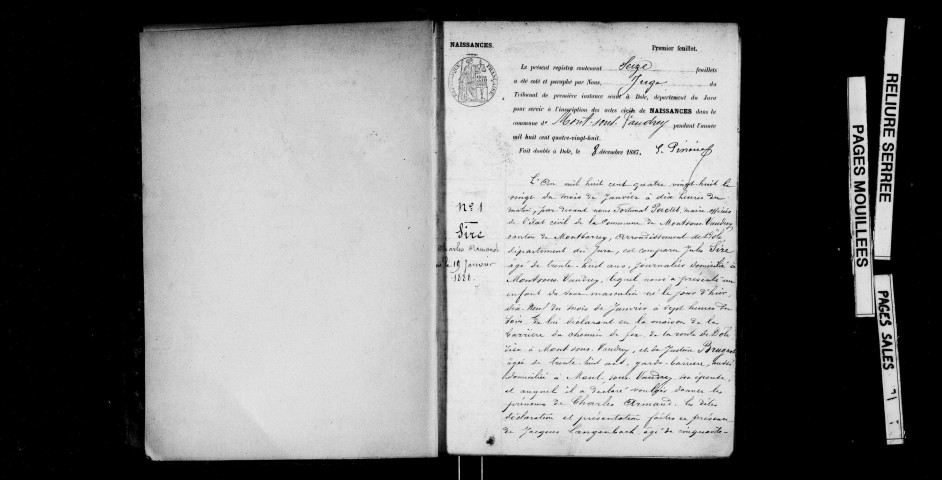 NAISSANCES.
Premier feuillet.
Le présent registre contenant Seize feuillets
a été coté et paraphé par Nous, Juge du
Tribunal de première instance séant à Dole, département du Jura
pour servir à l'inscription des actes civils de NAISSANCES dans la
commune de Mont-sous-Vaudrey pendant l'année
mil huit cent quatre-vingt-huit.
Fait double à Dole, le 8 décembre 1887.
N° 1
Sire
Charles Armand
le 19 Janvier
1888
L'An mil huit cent quatre vingt-huit le
vingt du mois de Janvier à dix heures du
matin, par devant nous Fortunat Perclet, maire officier
de l'état civil de la Commune de Montsous-Vaudrey
canton de Montbarrey, arrondissement de Dole
département du Jura, est comparu Jules Sire
âgé de trente-huit ans, journalier domicilié à
Montsous-Vaudrey, lequel nous a présenté un
enfant du sexe masculin né le jour d'hier,
dix-neuf du mois de Janvier à sept heures du
soir, de lui déclarant en la maison de la
barrière du chemin de fer de la route de Dole
sise à Mont sous-Vaudrey, et de Justine
âgée de trente huit ans, garde-barrière, aussi
domiciliée à Mont-sous-Vaudrey, son épouse,
et auquel il a déclaré vouloir donner les
prénoms de Charles Armand. les dites
déclaration et présentation faites en présence
de Jacques Langenbach, âgé de cinquante-
RELIURE SERREE
PAGES MOUILLEES
PAGES SALES